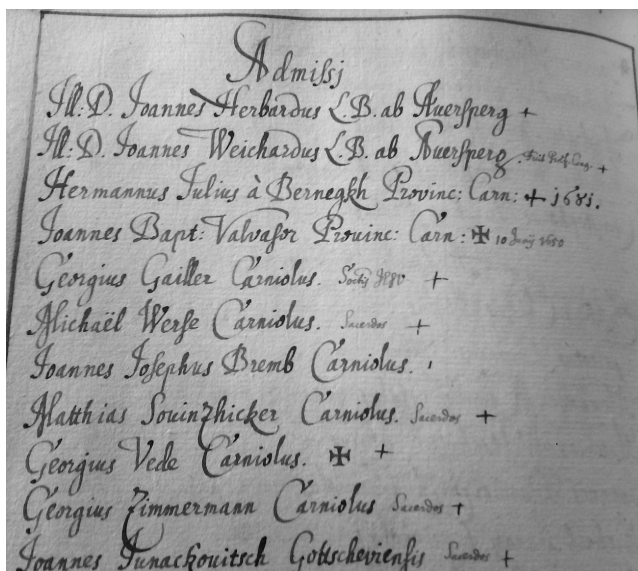 Admissj
Ill: D. Joannes Herbardus L.B. ab Auersperg +
Ill: D. Joannes Weichardus L.B. ab Auersperg. +
Hermannus Julius à Bernegkh Provinc: Carn: + 1681.
Joannes Bapt: Valvasor Prouinc: Carn: ✠ 10 1650
Georgius Gailler Carniolus. +
Michaël Werse Carniolus. Sacerdos +
Joannes Josephus Bremb Carniolus.
Matthias Souinzhicker Carniolus. Sacerdos +
Georgius Vede Carniolus. ✠ +
Georgius Zimmermann Carniolus Sacerdos +
Joannes Junackouitsch Gottscheviensis Sacerdos +